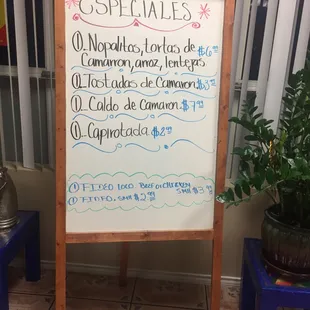 ESPECIALES
①. Nopalitos, tortas de $6.99
Camaron, arroz, lentejas
①. Tostadas de Camaron $3.99
①. Caldo de Camaron $7.99
①. Capirotada $2.99
① FIDEO LOCO BEEF OR CHICKEN
SMALL $3.99
① FIDEO. SMALL $2.99